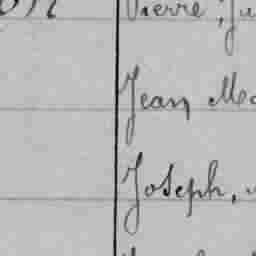 Pierre, Ju
Jean Ma
Joseph,